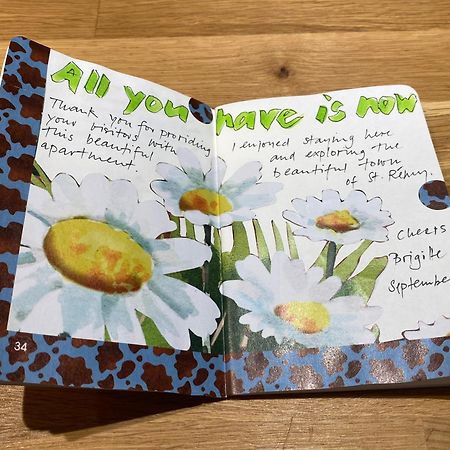 All you have is now
Thank you for providing
your visitors with
this beautiful
apartment.
I enjoyed staying here
and exploring the
beautiful town
of St. Rémy.
Cheers
Brigitte
September
34